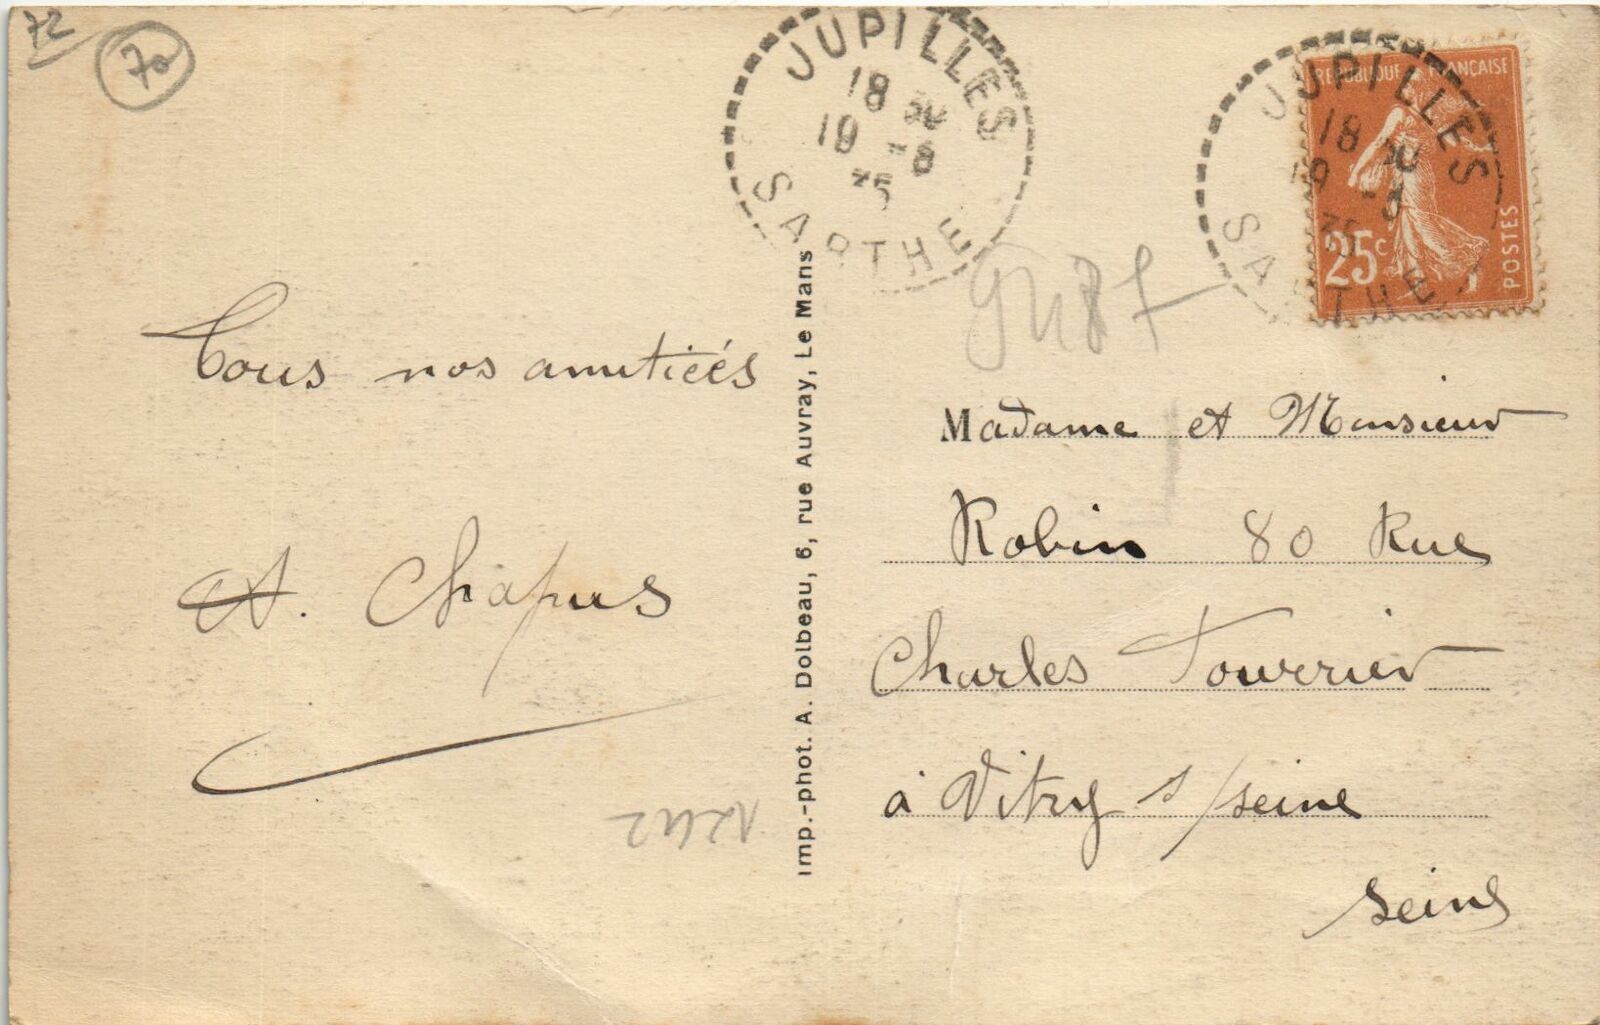 72
70
JUPILLES
18 30
19 -8
35
SARTHE
JUPILLES
18 30
19 -8
35
SARTHE
REPUBLIQUE FRANÇAISE
25c
POSTES
Tous nos amitiées
A. Chapus
Imp.-phot. A. Dolbeau, 6, rue Auvray, Le Mans
Madame et Monsieur
Robin 80 Rue
Charles Touvrier
à Vitry s/seine
Seine